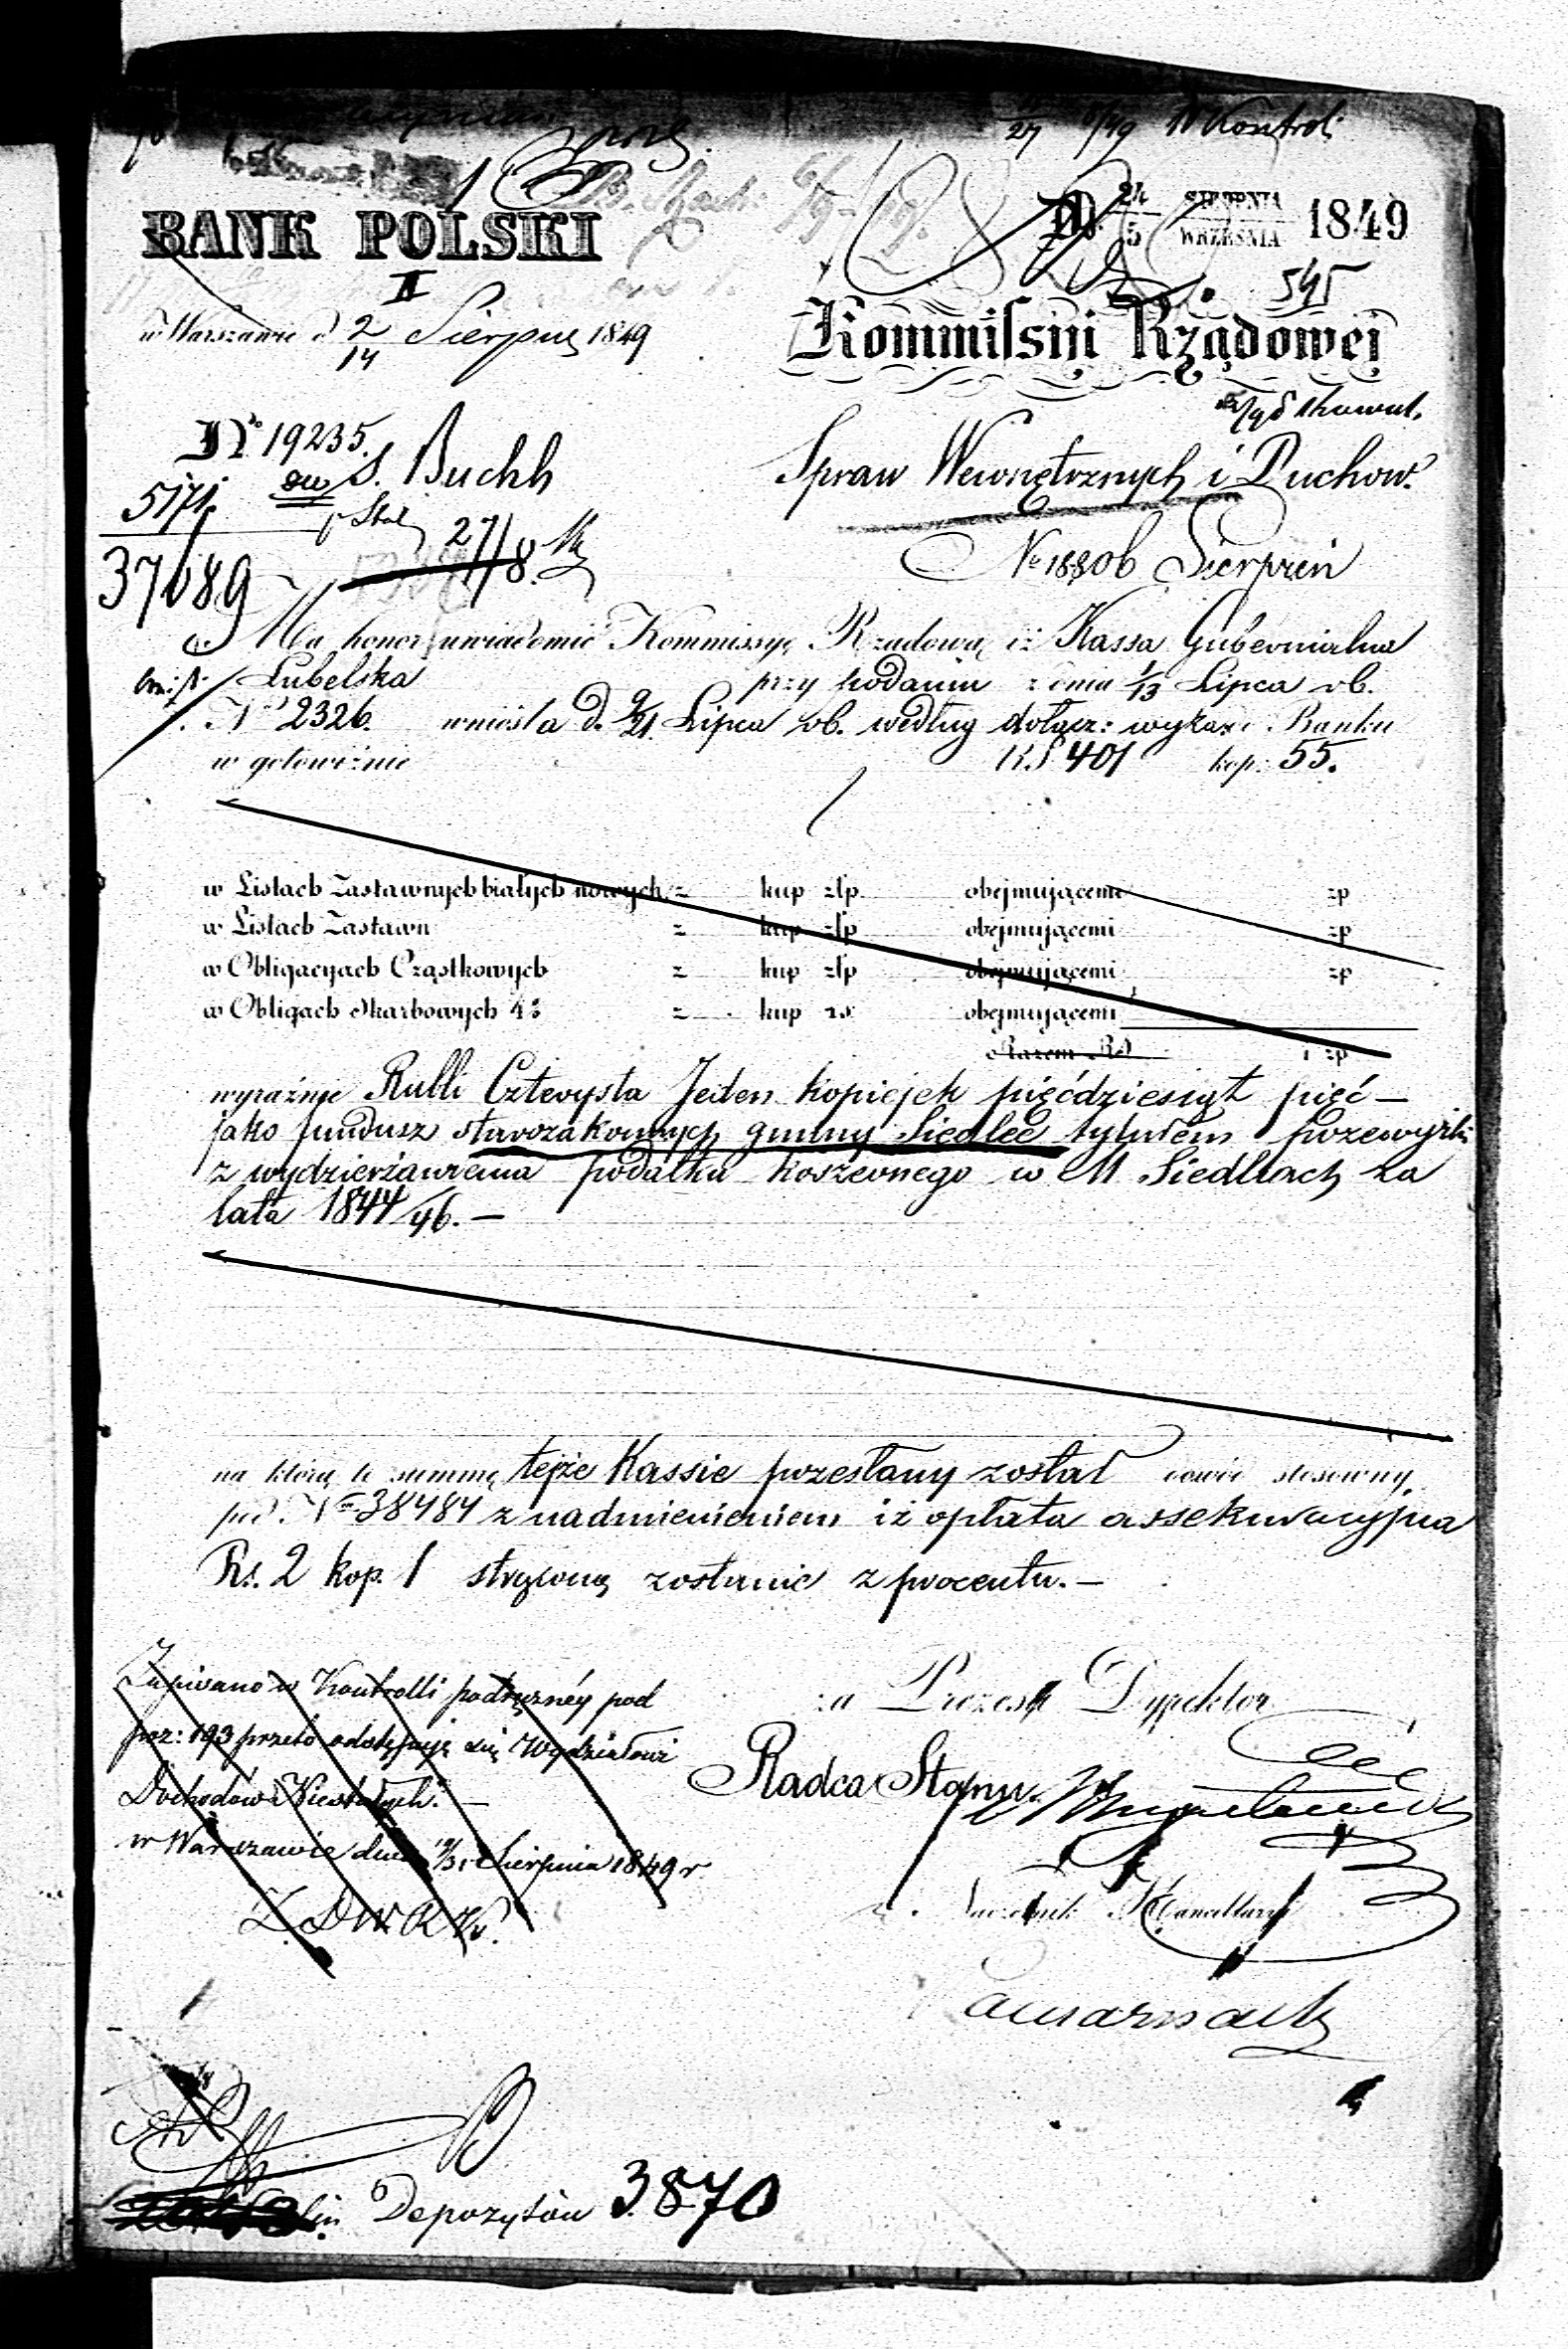 27 8/49 W Kontroli
BANK POLSKI
24 SIERPNIA
5 WRZEŚNIA 1849
II
545
w Warszawie d 2/14 Sierpnia 1849
Kommissyi Rządowej
No 19235.
S. Buchh
Spraw Wewnętrznych i Duchow.
5171.
27/8.
No 18806 Sierpień
37089
Ma honor uwiadomić Kommissyą Rządową iż Kassa Gubernialna
Lubelska przy podaniu z dnia 1/13 Lipca rb.
No 2326. wniosła d. 9/21 Lipca rb. według dołącz: wykazu Banku
w gotowiźnie RS 401 kop: 55.
w Listach Zastawnych białych nowych z kup złp. obejmującemi zp
w Listach Zastawn z kup złp obejmującemi zp
w Obligacyach Cząstkowych z kup złp obejmującemi zp
w Obligach Skarbowych 4% z kup rs obejmującemi
Razem RS i zp
wyraźnie Rubli Czterysta Jeden kopiejek pięćdziesiąt pięć —
jako fundusz starozakonnych gminy Siedlec tytułem przewyżki
z wydzierżawienia podatku koszernego w M. Siedlcach za
lata 1844/46. —
na którą to summę tejże Kassie przesłany został dowód stosowny
pod No 38484 z nadmienieniem iż opłata assekuracyjna
Rs. 2 kop. 1 strącona zostanie z procentu. —
Zapisano w Kontrolli podręcznéy pod
poz: 193 przeto odstępuje się Wydziałowi
Dochodów Niestałych. —
w Warszawie dnia 19/31 Sierpnia 1849 r
za Prezesa Dyrektor
Radca Stanu.
Naczelnik Kancellaryi
Depozytów 3870